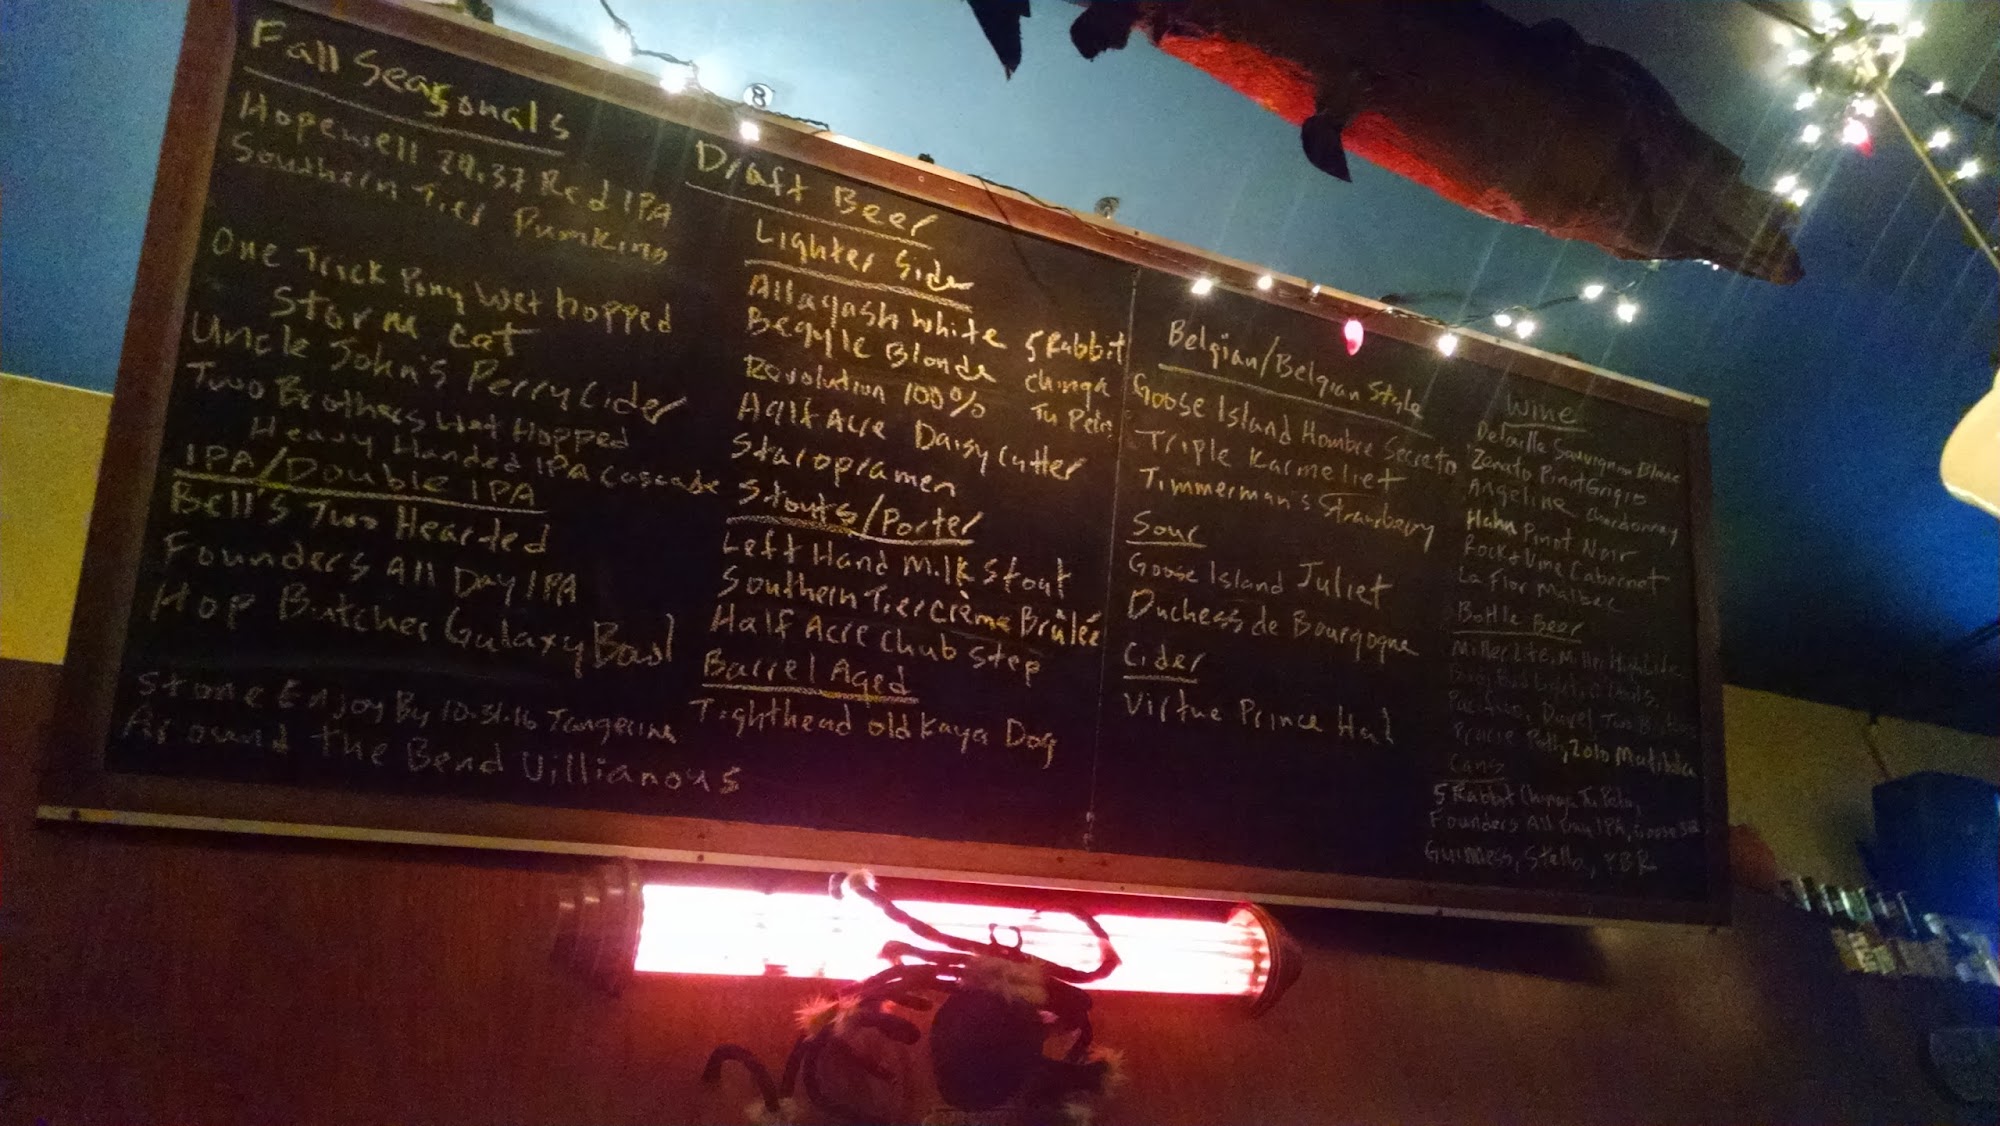 Fall Seasonals
Hopewell 24.37 Red IPA
Southern Tier Pumking
One Trick Pony Wet hopped
Storm Cat
Uncle John's Perry Cider
Two Brothers Wet Hopped
Heavy Handed IPA Cascade
IPA/Double IPA
Bell's Two Hearted
Founders All Day IPA
Hop Butcher Galaxy Bowl
Stone Enjoy By 10.31.16 Tangerine
Around the Bend Villianous
Draft Beer
Lighter Side
Allagash White
Begyle Blonde
Revolution 100%
Half Acre Daisy Cutter
Staropramen
5 Rabbit
Chinga
Tu Pelo
Stouts/Porter
Left Hand Milk Stout
Southern Tier Crème Brûlée
Half Acre Chub Step
Barrel Aged
Tighthead Old Kaya Dog
Belgian/Belgian Style
Goose Island Hombre Secreto
Triple Karmeliet
Timmerman's Strawberry
Sour
Goose Island Juliet
Duchess de Bourgogne
Cider
Virtue Prince Hal
Wine
Sauvignon Blanc
Zenato Pinot Grigio
Angeline Chardonnay
Hahn Pinot Noir
Rock & Vine Cabernet
La Flor Malbec
Bottle Beer
Miller Lite, Miller High Life
Bud Light,
Pacifico, Duvel, Two Brothers
Prairie Path,
Cans
5 Rabbit Chinga Tu Pelo,
Founders All Day IPA, Goose 312
Guinness, Stella, PBR
8